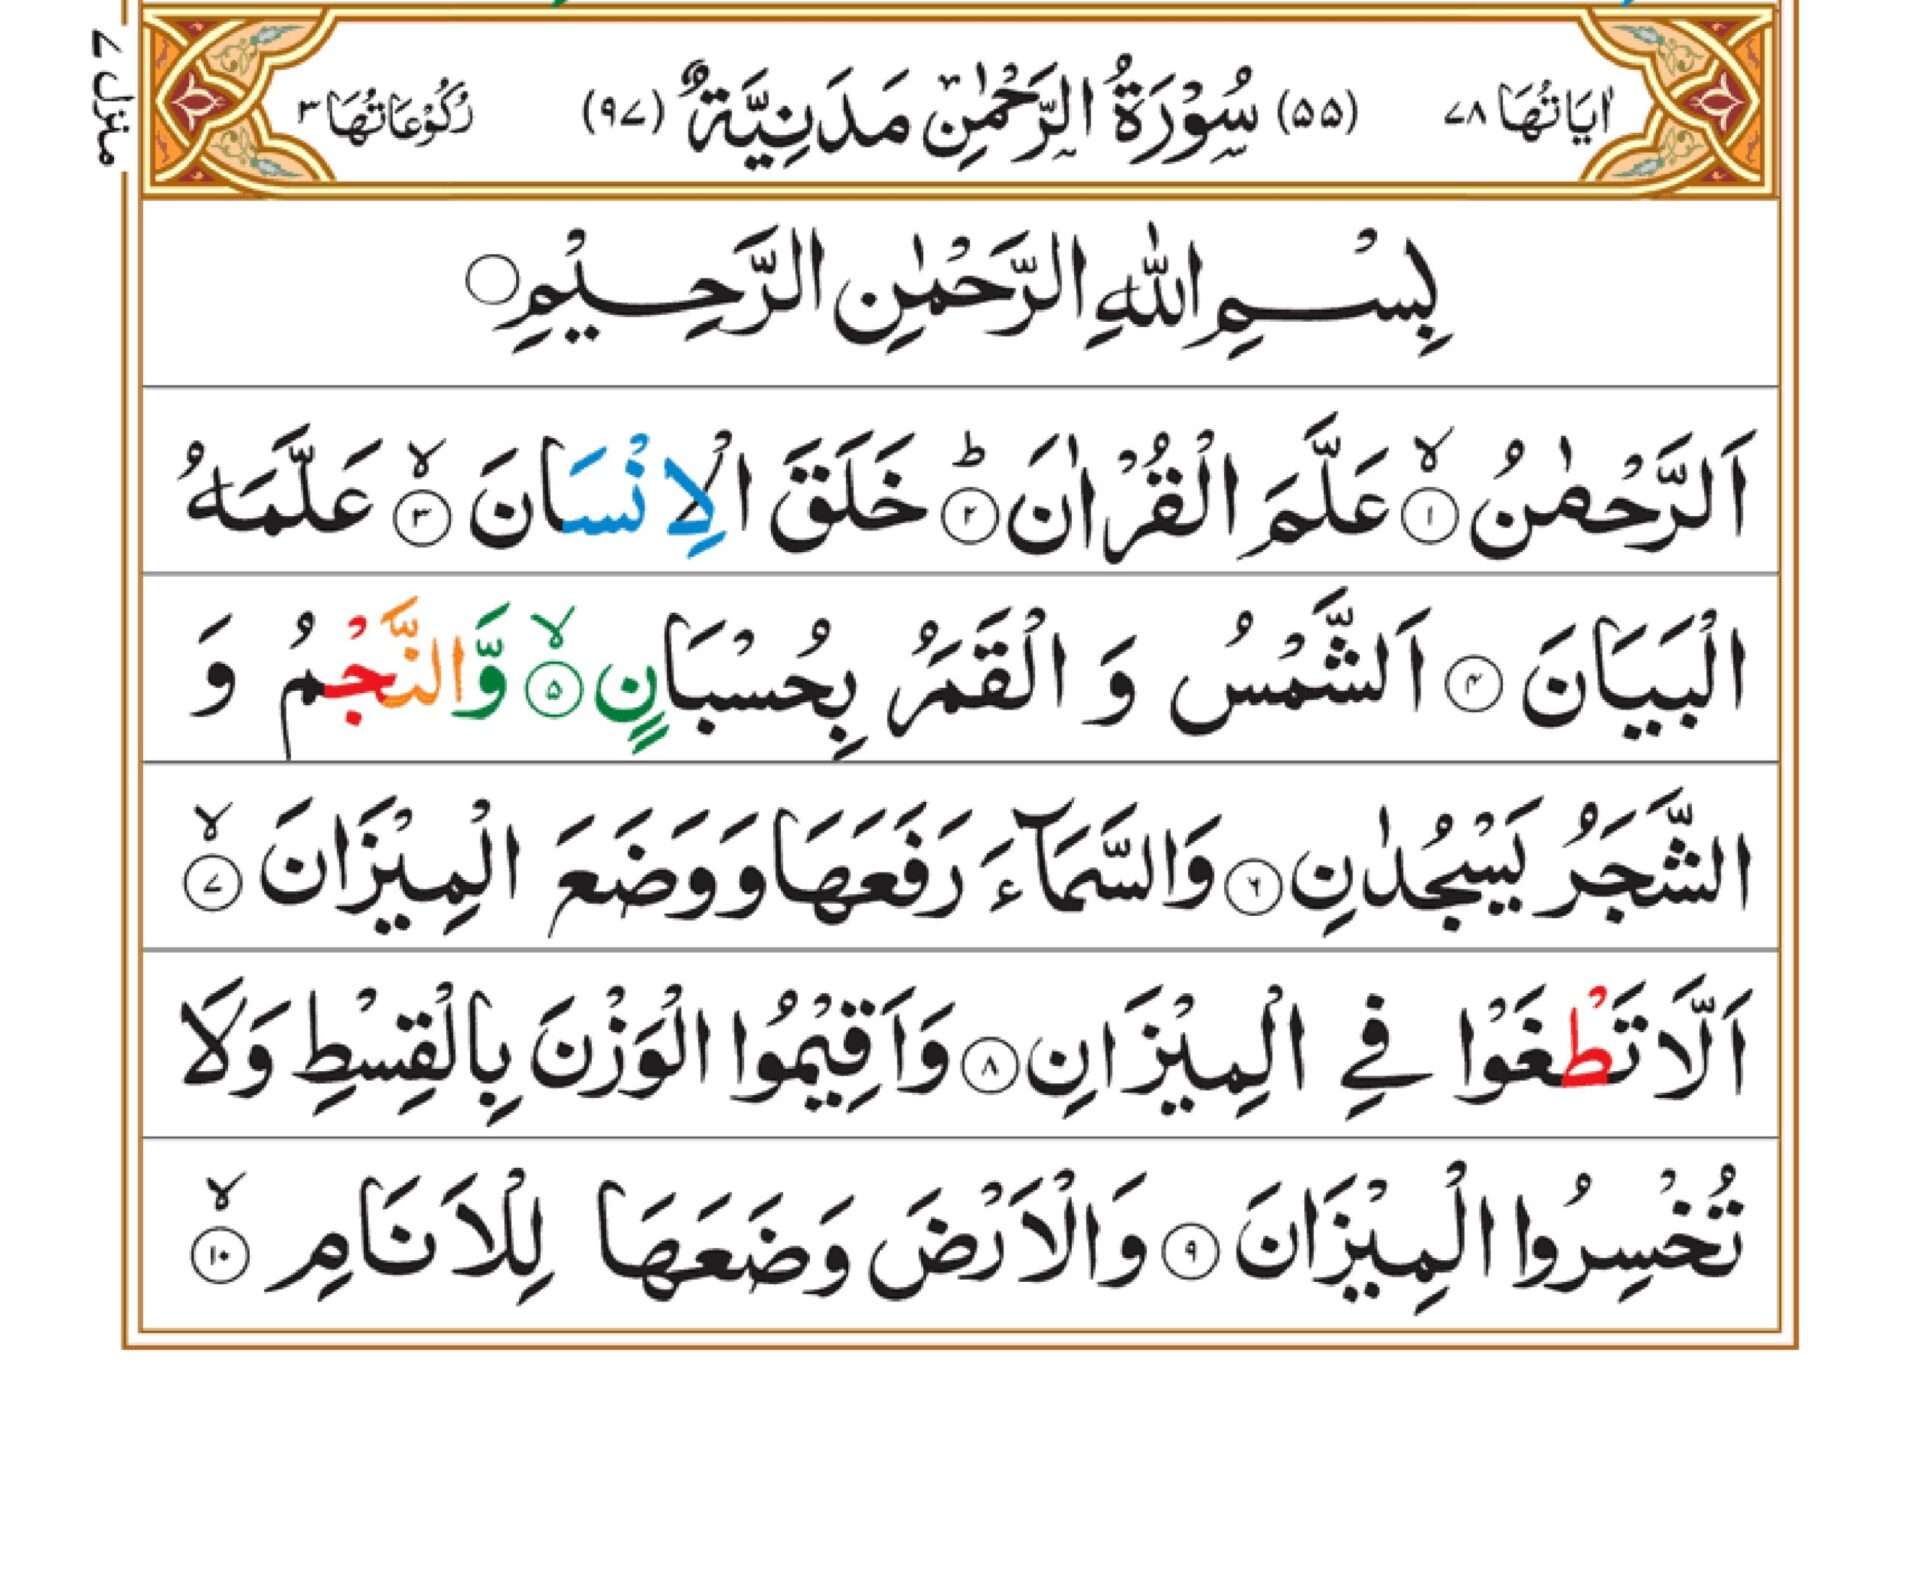 اٰيَاتُهَا ٧٨ (٥٥) سُوْرَةُ الرَّحْمٰنِ مَدَنِيَّةٌ (٩٧) رُكُوْعَاتُهَا ٣
منزل ٧
بِسْمِ اللّٰهِ الرَّحْمٰنِ الرَّحِيْمِ
اَلرَّحْمٰنُ ۙ﴿١﴾ عَلَّمَ الْقُرْاٰنَ ؕ﴿٢﴾ خَلَقَ الْاِنْسَانَ ۙ﴿٣﴾ عَلَّمَهُ
الْبَيَانَ ﴿٤﴾ اَلشَّمْسُ وَ الْقَمَرُ بِحُسْبَانٍ ۙ﴿٥﴾ وَّالنَّجْمُ وَ
الشَّجَرُ يَسْجُدٰنِ ﴿٦﴾ وَالسَّمَآءَ رَفَعَهَا وَوَضَعَ الْمِيْزَانَ ۙ﴿٧﴾
اَلَّا تَطْغَوْا فِي الْمِيْزَانِ ﴿٨﴾ وَاَقِيْمُوا الْوَزْنَ بِالْقِسْطِ وَلَا
تُخْسِرُوا الْمِيْزَانَ ﴿٩﴾ وَالْاَرْضَ وَضَعَهَا لِلْاَنَامِ ۙ﴿١٠﴾